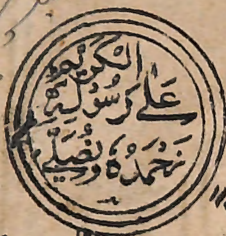 نحمده ونصلي
على رسوله
الكريم